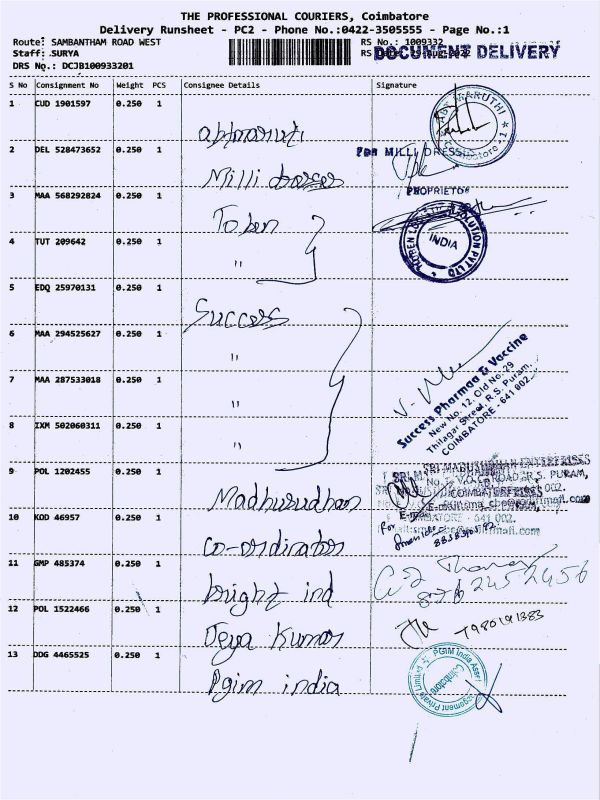 THE PROFESSIONAL COURIERS, Coimbatore
Delivery Runsheet - PC2 - Phone No.:0422-3505555 - Page No.:1
Route: SAMBANTHAM ROAD WEST
RS No.: 1009332
Staff: SURYA
DOCUMENT DELIVERY
DRS No.: DCJB100933201
S No Consignment No Weight PCS Consignee Details Signature
1 CUD 1901597 0.250 1
2 DEL 528473652 0.250 1
FOR MILLI DRESSES
Milli dresses
PROPRIETOR
3 MAA 568292824 0.250 1
4 TUT 209642 0.250 1
INDIA
"
5 EDQ 25970131 0.250 1
Success
6 MAA 294525627 0.250 1
"
7 MAA 287533018 0.250 1
"
Success Pharmaa & Vaccine
New No. 12, Old No.29
Thilagar Street, R.S. Puram,
COIMBATORE - 641 002.
8 IXM 502060311 0.250 1
"
9 POL 1202455 0.250 1
Madhusudhan
SRI MADHUSUDHAN ENTERPRISES
10 KOD 46957 0.250 1
co-ordinator
11 GMP 485374 0.250 1
bright ind
12 POL 1522466 0.250 1
Jeya Kumar
13 DDG 4465525 0.250 1
Pgim india